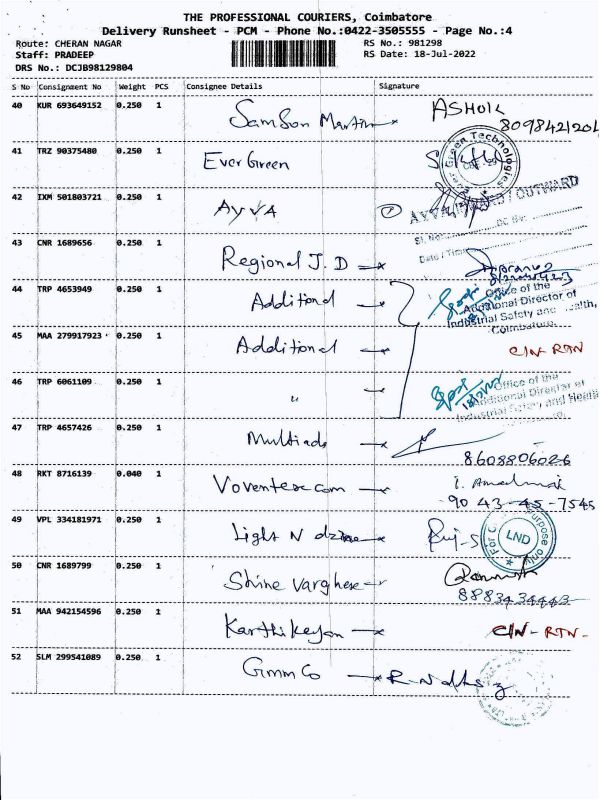 THE PROFESSIONAL COURIERS, Coimbatore
Delivery Runsheet - PCM - Phone No.:0422-3505555 - Page No.:4
Route: CHERAN NAGAR RS No.: 981298
Staff: PRADEEP RS Date: 18-Jul-2022
DRS No.: DCJB98129804
S No Consignment No Weight PCS Consignee Details Signature
40 KUR 693649152 0.250 1 Samson Martin ASHOK
8098421204
41 TRZ 90375480 0.250 1 Ever Green Ever Green Technologies
42 IXM 501803721 0.250 1 AYVA AYVA OUTWARD
Sl. No:
Date / Time
43 CNR 1689656 0.250 1 Regional J. D
44 TRP 4653949 0.250 1 Additional Office of the
Additional Director of
Industrial Safety and Health,
Coimbatore.
45 MAA 279917923 0.250 1 Additional CIN-RTN
46 TRP 6061109 0.250 1 " Office of the
Additional Director of
Industrial Safety and Health
47 TRP 4657426 0.250 1 Multiads
8608806026
48 RKT 8716139 0.040 1 Voventexcom
90 43-45-7545
49 VPL 334181971 0.250 1 Light N dzine LND
50 CNR 1689799 0.250 1 Shine Varghese
8883434443
51 MAA 942154596 0.250 1 Karthikeyan CIN-RTN-
52 SLM 299541089 0.250 1 Gmm Co